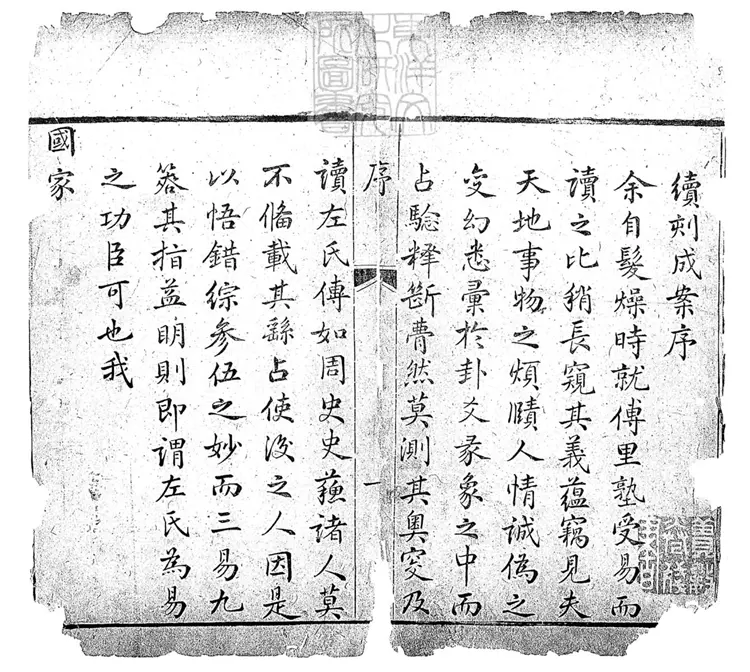 東洋文
化研究
所圖書
續刻成案序
余自髮燥時就傅里塾受易而
讀之比稍長窺其義蘊竊見夫
天地事物之煩賾人情誠偽之
變幻悉彙於卦爻彖象之中而
占驗釋斷瞢然莫測其奧窔及
序
一
讀左氏傳如周史史蘓諸人莫
不僃載其繇占使後之人因是
以悟錯綜參伍之妙而三易九
筮其指益明則即謂左氏為易
之功臣可也我
國家